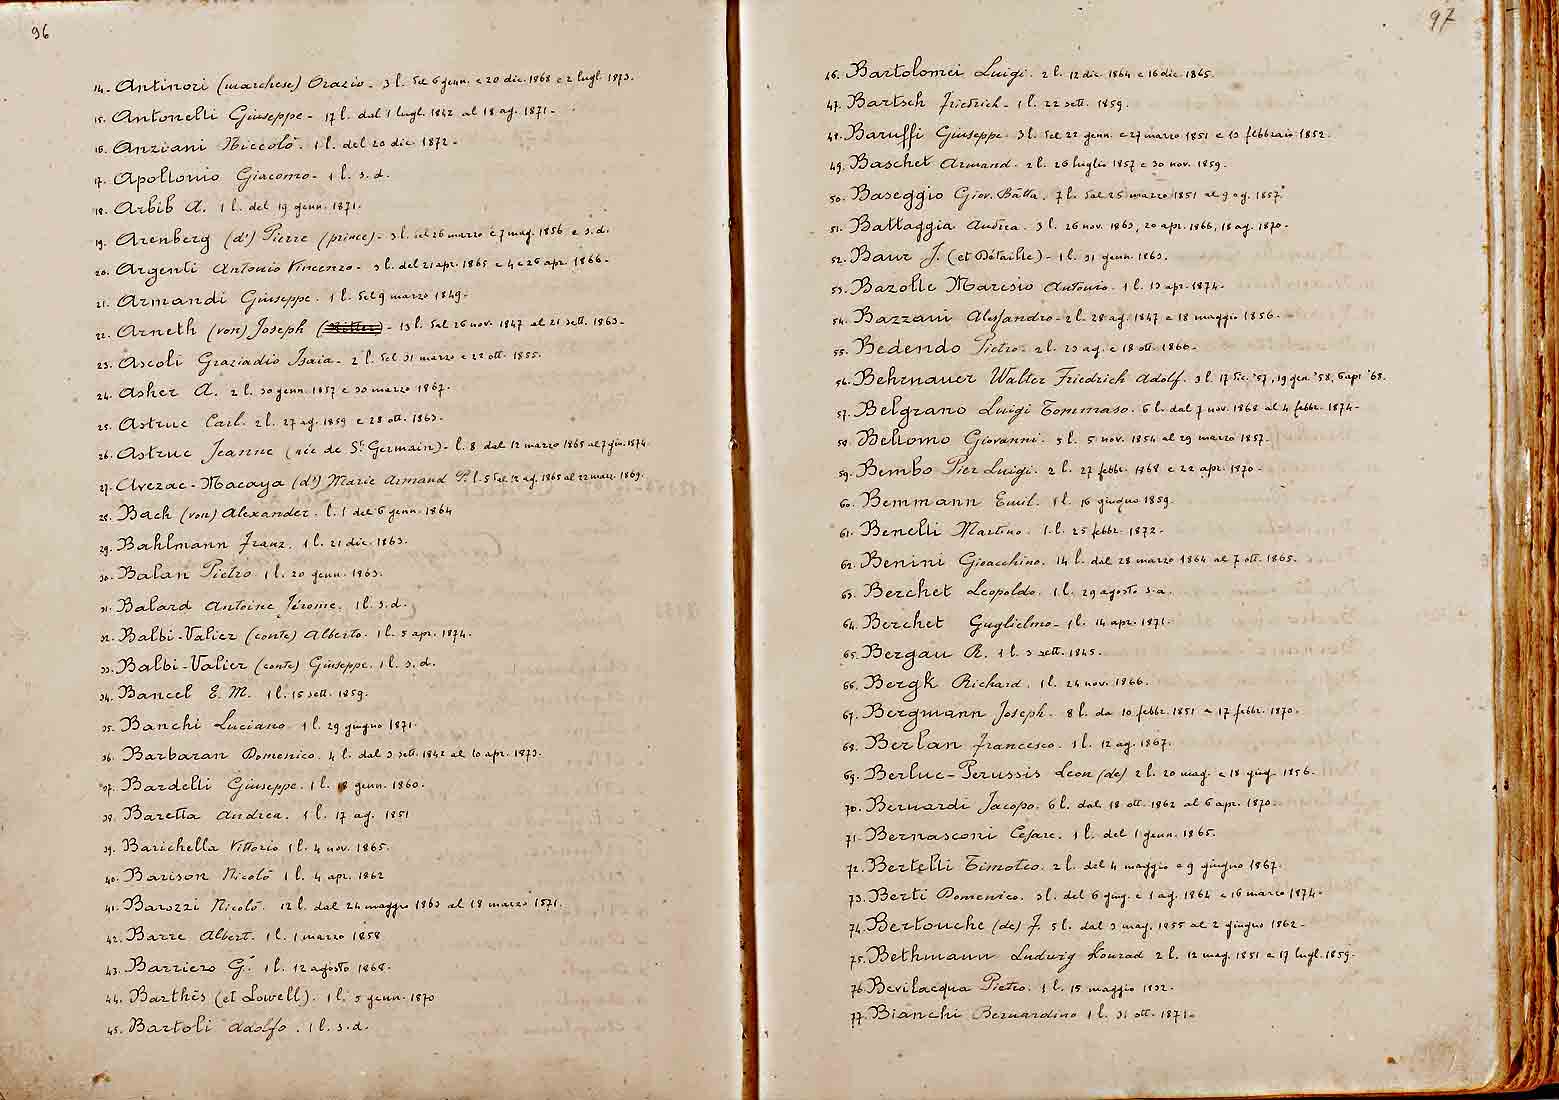 96
14. Antinori (marchese) Orazio. 3 l. del 6 genn. e 20 dic. 1868 e 2 lugl. 1873.
15. Antonelli Giuseppe. 17 l. dal 1 lugl. 1842 al 18 ag. 1871.
16. Anziani Niccolò. 1 l. del 20 dic. 1872.
17. Apollonio Giacomo. 1 l. s.d.
18. Arbib A. 1 l. del 19 genn. 1871.
19. Arenberg (d') Pierre (prince). 3 l. del 26 marzo e 7 mag. 1856 e s.d.
20. Argenti Antonio Vincenzo. 3 l. del 21 apr. 1865 e 4 e 26 apr. 1866.
21. Armandi Giuseppe. 1 l. del 9 marzo 1849.
22. Arneth (von) Joseph (Ritter). 13 l. dal 26 nov. 1847 al 21 sett. 1863.
23. Ascoli Graziadio Isaia. 2 l. del 31 marzo e 22 ott. 1855.
24. Asher A. 2 l. 30 genn. 1857 e 30 marzo 1867.
25. Astruc Carl. 2 l. 27 ag. 1859 e 28 ott. 1863.
26. Astruc Jeanne (née de St. Germain). l. 8 dal 12 marzo 1865 al 7 giu. 1874.
27. Avezac-Macaya (d') Marie Armand P. l. 5 dal 12 ag. 1865 al 22 marz. 1869.
28. Bach (von) Alexander. l. 1 del 6 genn. 1864
29. Bahlmann Franz. 1 l. 21 dic. 1863.
30. Balan Pietro 1 l. 20 genn. 1863.
31. Balard Antoine Jérome. 1 l. s.d.
32. Balbi-Valier (conte) Alberto. 1 l. 5 apr. 1874.
33. Balbi-Valier (conte) Giuseppe. 1 l. s.d.
34. Bancel E. M. 1 l. 15 sett. 1859.
35. Banchi Luciano. 1 l. 29 giugno 1871.
36. Barbaran Domenico. 4 l. dal 3 sett. 1842 al 10 apr. 1873.
37. Bardelli Giuseppe. 1 l. 18 genn. 1860.
38. Baretta Andrea. 1 l. 17 ag. 1851
39. Barichella Vittorio 1 l. 4 nov. 1865.
40. Barison Nicolò 1 l. 4 apr. 1862
41. Barozzi Nicolò. 12 l. dal 24 maggio 1863 al 18 marzo 1871.
42. Barre Albert. 1 l. 1 marzo 1858
43. Barriero G. 1 l. 12 agosto 1868.
44. Barthès (et Lowell). 1 l. 5 genn. 1870
45. Bartoli Adolfo. 1 l. s.d.
97
46. Bartolomei Luigi. 2 l. 12 dic. 1864 e 16 dic. 1865.
47. Bartsch Friedrich. 1 l. 22 sett. 1859.
48. Baruffi Giuseppe. 3 l. del 22 genn. e 27 marzo 1851 e 13 febbraio 1852.
49. Baschet Armand. 2 l. 26 luglio 1857 e 30 nov. 1859.
50. Baseggio Giov. Batta. 7 l. dal 25 marzo 1851 al 9 ag. 1857.
51. Battaggia Andrea. 3 l. 26 nov. 1863, 20 apr. 1866, 18 ag. 1870.
52. Baur J. (et Détaille). 1 l. 31 genn. 1863.
53. Bazolle Maresio Antonio. 1 l. 13 apr. 1874.
54. Bazzani Alessandro. 2 l. 28 ag. 1847 e 18 maggio 1856.
55. Bedendo Pietro. 2 l. 23 ag. e 18 ott. 1860.
56. Behrnauer Walter Friedrich Adolf. 3 l. 17 dic. '57, 19 gen. '58, 6 apr. '68.
57. Belgrano Luigi Tommaso. 6 l. dal 7 nov. 1868 al 4 febbr. 1874.
58. Bellomo Giovanni. 5 l. 5 nov. 1854 al 29 marzo 1857.
59. Bembo Pier Luigi. 2 l. 27 febbr. 1868 e 22 apr. 1870.
60. Bemmann Emil. 1 l. 16 giugno 1859.
61. Benelli Martino. 1 l. 25 febbr. 1872.
62. Benini Gioacchino. 14 l. dal 28 marzo 1864 al 7 ott. 1865.
63. Berchet Leopoldo. 1 l. 29 agosto s.a.
64. Berchet Guglielmo. 1 l. 14 apr. 1871.
65. Bergau R. 1 l. 3 sett. 1845.
66. Bergk Richard. 1 l. 24 nov. 1866.
67. Bergmann Joseph. 8 l. da 10 febbr. 1851 a 17 febbr. 1870.
68. Berlan Francesco. 1 l. 12 ag. 1867.
69. Berluc-Perussis Leon (de) 2 l. 20 mag. e 18 giug. 1856.
70. Bernardi Jacopo. 6 l. dal 18 ott. 1862 al 6 apr. 1870.
71. Bernasconi Cesare. 1 l. del 1 genn. 1865.
72. Bertelli Timoteo. 2 l. del 4 maggio e 9 giugno 1867.
73. Berti Domenico. 3 l. del 6 giug. e 1 ag. 1864 e 16 marzo 1874.
74. Bertouche (de) F. 5 l. dal 3 mag. 1855 al 2 giugno 1862.
75. Bethmann Ludwig Konrad 2 l. 12 mag. 1851 e 17 lugl. 1859.
76. Bevilacqua Pietro. 1 l. 15 maggio 1832.
77. Bianchi Bernardino 1 l. 31 ott. 1871.